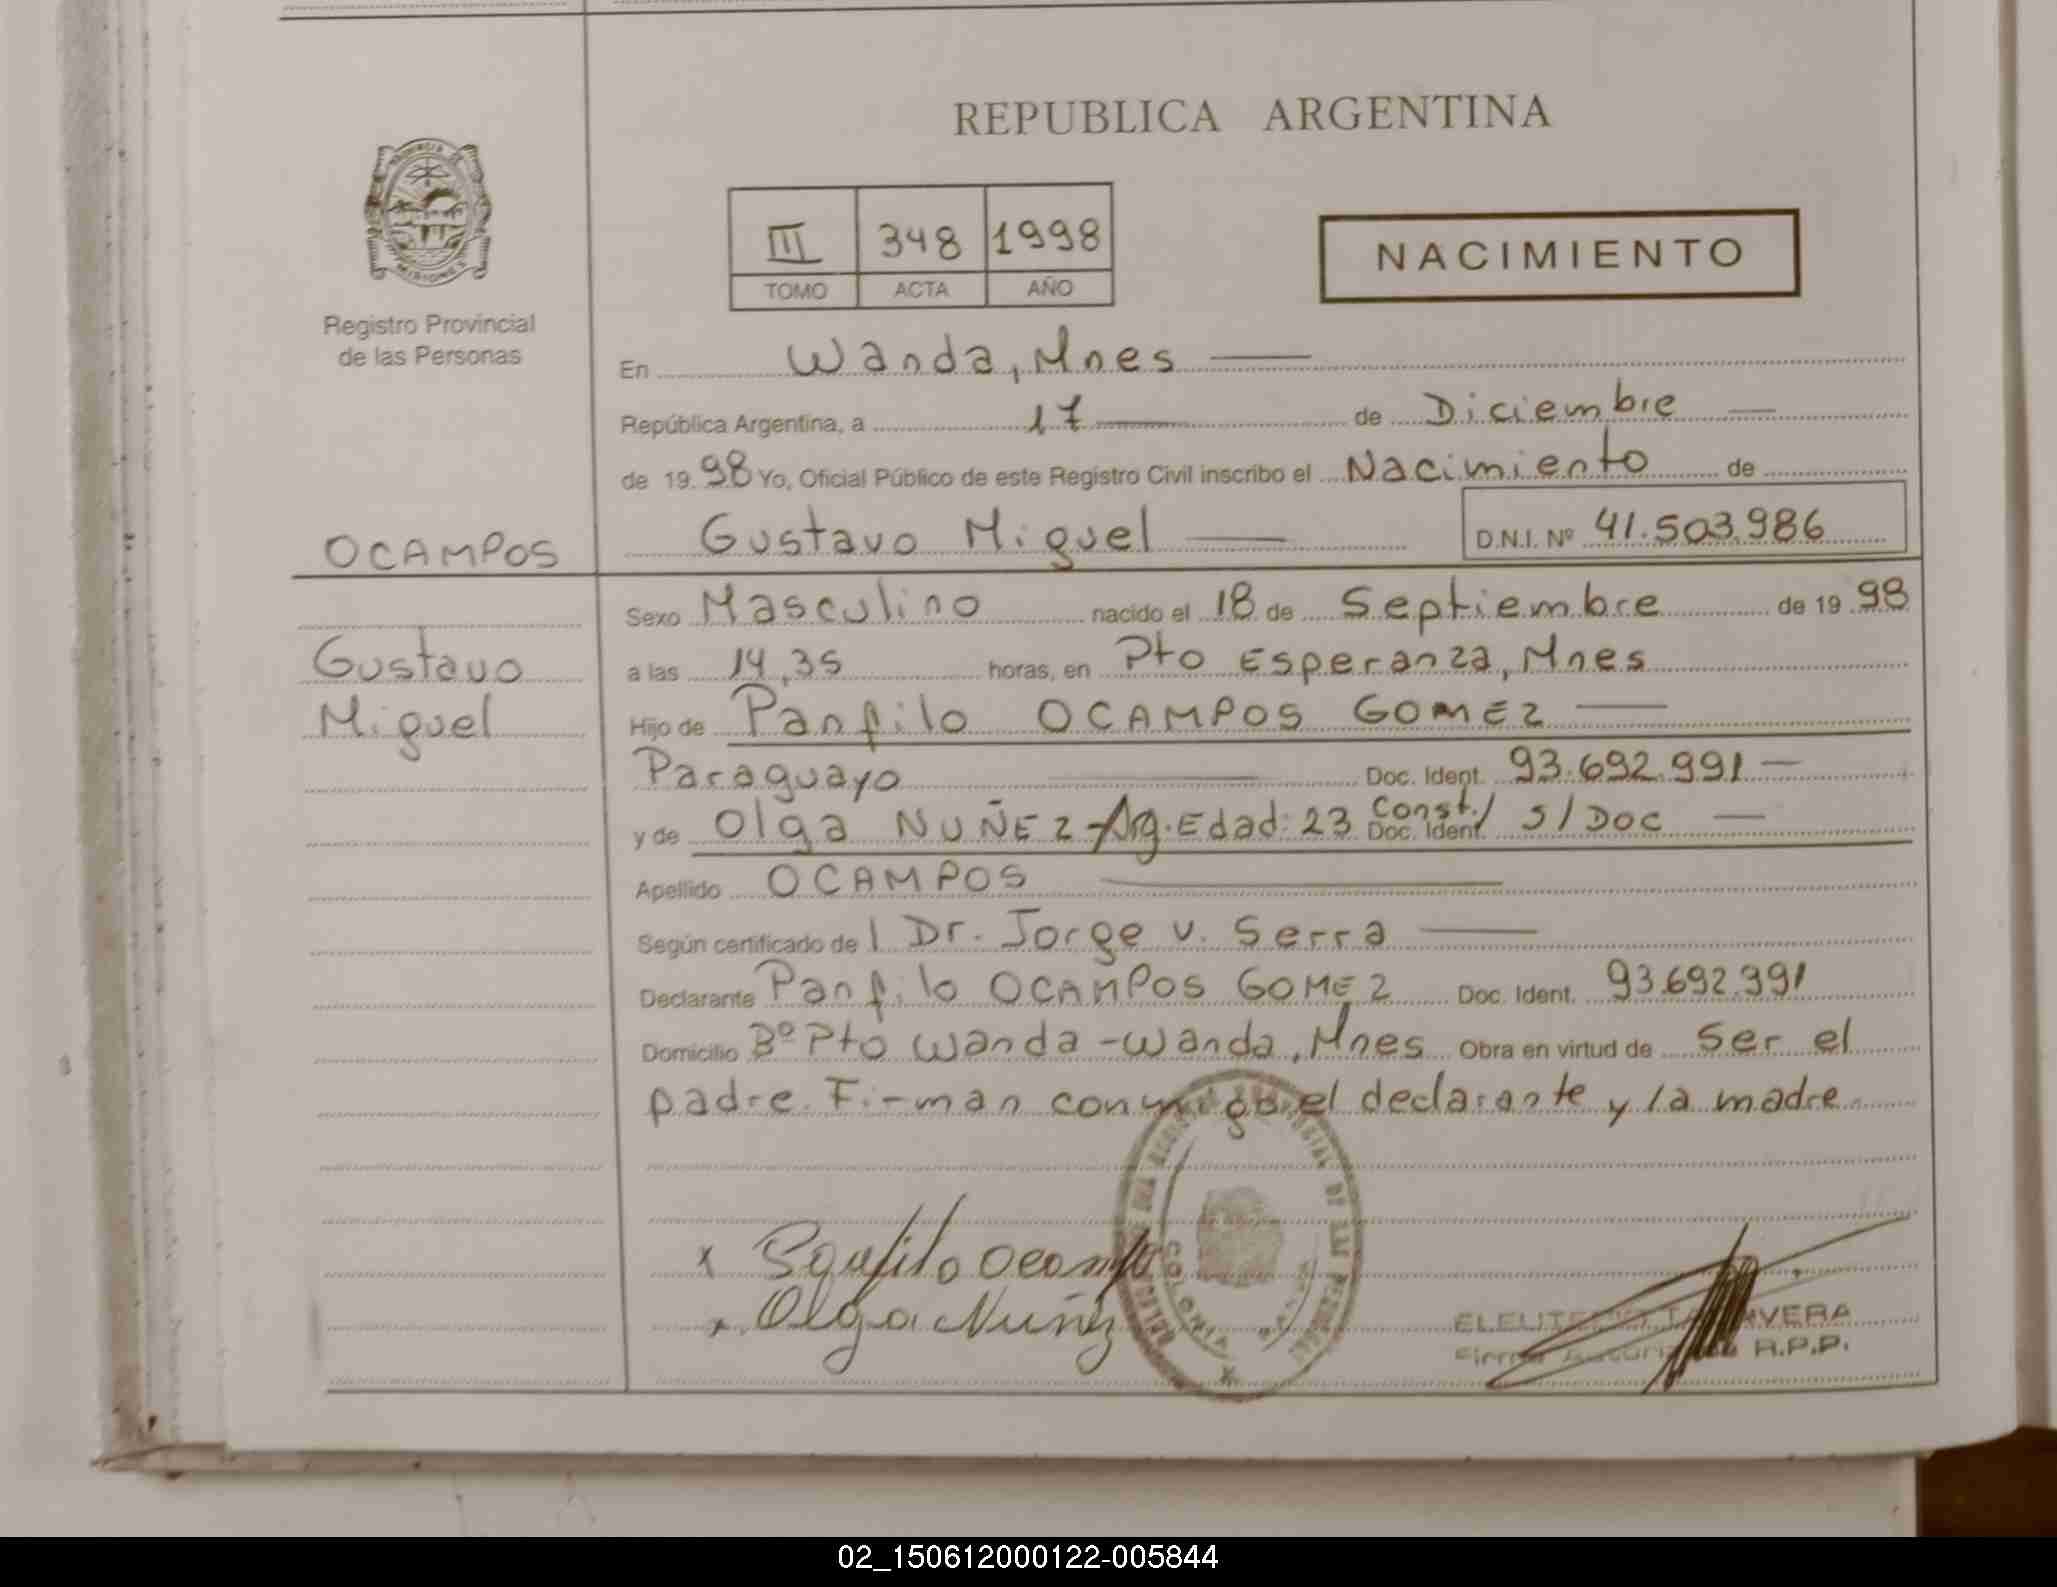 REPUBLICA ARGENTINA
PROVINCIA DE
MISIONES
Registro Provincial
de las Personas
III 348 1998
TOMO ACTA AÑO
NACIMIENTO
En Wanda, Mnes
República Argentina, a 17 de Diciembre
de 1998 Yo, Oficial Público de este Registro Civil inscribo el Nacimiento de
OCAMPOS
Gustavo Miguel D.N.I. Nº 41.503.986
Gustavo
Miguel
Sexo Masculino nacido el 18 de Septiembre de 1998
a las 14,35 horas, en Pto Esperanza, Mnes
Hijo de Panfilo OCAMPOS GOMEZ
Paraguayo Doc. Ident. 93.692.991
y de Olga NUÑEZ-Arg. Edad: 23 Const./ Doc. Ident. S/Doc
Apellido OCAMPOS
Según certificado de l Dr. Jorge V. Serra
Declarante Panfilo OCAMPOS GOMEZ Doc. Ident. 93.692.991
Domicilio Bº Pto Wanda-Wanda, Mnes Obra en virtud de ser el
padre. Firman conmigo el declarante y la madre
x Panfilo Ocampo
x Olga Nuñez
COLONIA
DE LAS PERSONAS
ELEUTERIO TALAVERA
Firma Autorizada R.P.P.
02_150612000122-005844